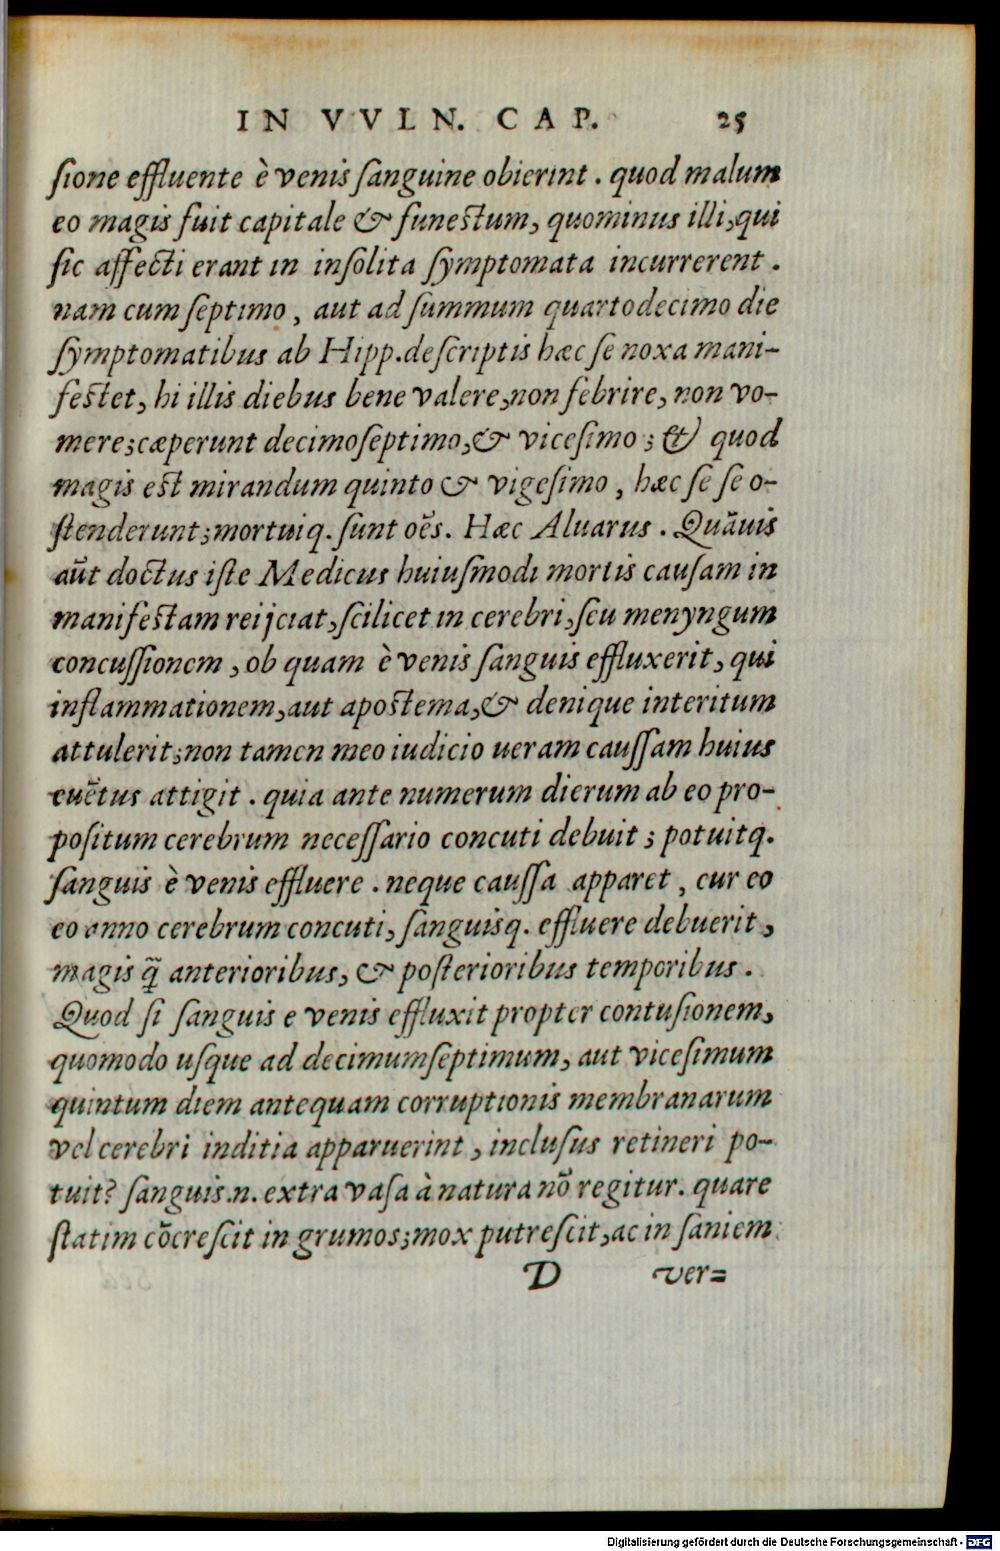 IN VVLN. CAP. 25
ſione effluente è venis ſanguine obierint. quod malum
eo magis fuit capitale & funeſtum, quominus illi, qui
ſic affecti erant in inſolita ſymptomata incurrerent.
nam cum ſeptimo, aut ad ſummum quartodecimo die
ſymptomatibus ab Hipp. deſcriptis hæc ſe noxa mani-
feſtet, hi illis diebus bene valere, non febrire, non vo-
mere; cæperunt decimoſeptimo, & viceſimo; & quod
magis eſt mirandum quinto & vigeſimo, hæc ſe ſe o-
ſtenderunt; mortuiq. ſunt oẽs. Hæc Aluarus. Quãuis
aũt doctus iſte Medicus huiuſmodi mortis cauſam in
manifeſtam reijciat, ſcilicet in cerebri, ſeu menyngum
concuſſionem, ob quam è venis ſanguis effluxerit, qui
inflammationem, aut apoſtema, & denique interitum
attulerit; non tamen meo iudicio ueram cauſſam huius
euẽtus attigit. quia ante numerum dierum ab eo pro-
poſitum cerebrum neceſſario concuti debuit; potuitq.
ſanguis è venis effluere. neque cauſſa apparet, cur eo
eo anno cerebrum concuti, ſanguisq. effluere debuerit,
magis q̃ anterioribus, & poſterioribus temporibus.
Quod ſi ſanguis e venis effluxit propter contuſionem,
quomodo uſque ad decimumſeptimum, aut viceſimum
quintum diem antequam corruptionis membranarum
vel cerebri inditia apparuerint, incluſus retineri po-
tuit? ſanguis .n. extra vaſa à natura nõ regitur. quare
ſtatim cõcreſcit in grumos; mox putreſcit, ac in ſaniem
D ver=
Digitalisierung gefördert durch die Deutsche Forschungsgemeinschaft - DFG